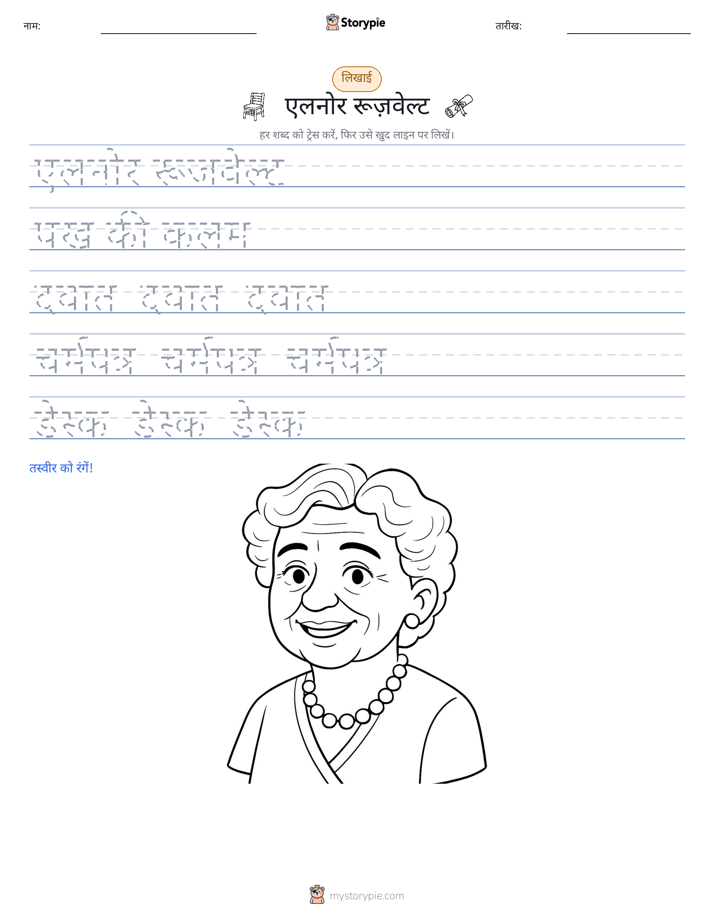 नाम:
Storypie
तारीख:
लिखाई
एलनोर रूज़वेल्ट
हर शब्द को ट्रेस करें, फिर उसे खुद लाइन पर लिखें।
एलनोर रूज़वेल्ट
पंख की कलम
दवात दवात दवात
चर्मपत्र चर्मपत्र चर्मपत्र
डेस्क डेस्क डेस्क
तस्वीर को रंगें!
mystorypie.com